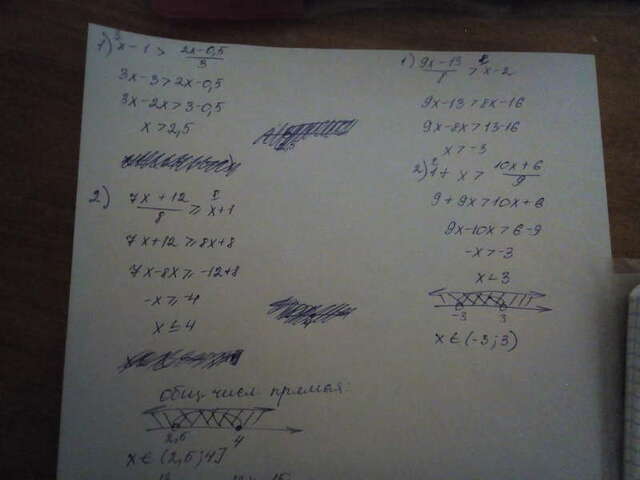 1) ³x-1 > 2x-0,5/3
3x-3>2x-0,5
3x-2x>3-0,5
x>2,5
2) 7x+12/8 ≥ ⁸x+1
7x+12 ≥ 8x+8
7x-8x ≥ -12+8
-x ≥ -4
x ≤ 4
общ. числ. прямая:
2,5 4
x ∈ (2,5; 4]
1) 9x-13/8 > ⁸x-2
9x-13>8x-16
9x-8x>13-16
x>-3
2) ⁹1+x > 10x+6/9
9+9x>10x+6
9x-10x>6-9
-x>-3
x<3
-3 3
x ∈ (-3; 3)